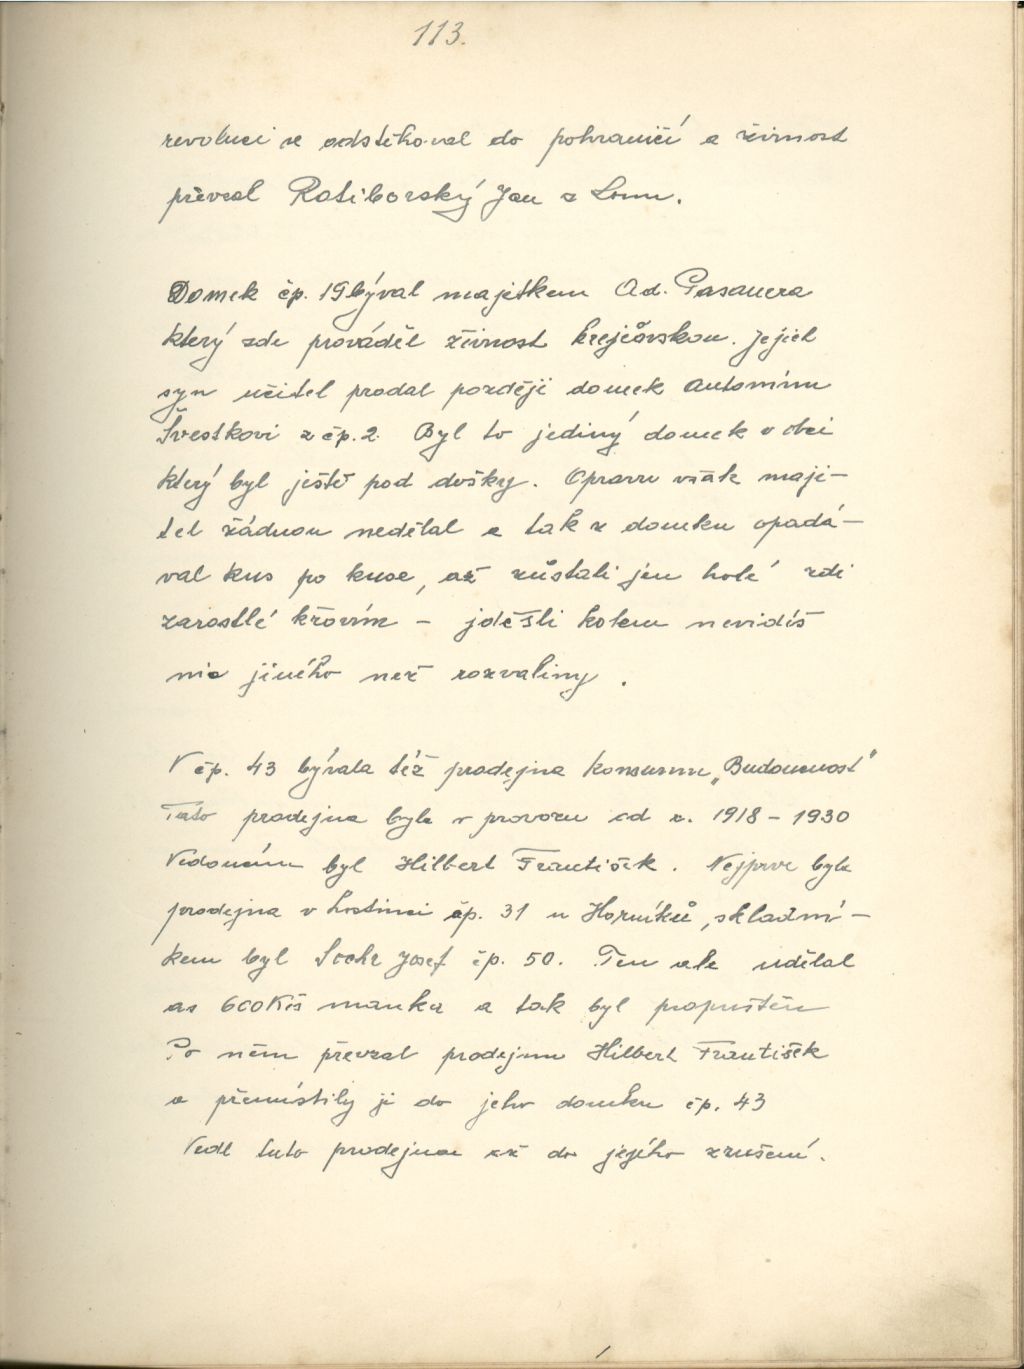 113.
revoluci se odstěhoval do pohraničí a živnost
převzal Ratiborský Jan z Lomu.
Domek čp. 19 býval majetkem Ad. Pasauera
který zde prováděl živnost krejčovskou. Jejich
syn učitel prodal později domek Antonínu
Švestkovi z čp. 2. Byl to jediný domek v obci
který byl ještě pod došky. Opravu však maji-
tel žádnou nedělal a tak z domku opadá-
val kus po kuse, až zůstali jen holé zdi
zarostlé křovím – jdeš li kolem nevidíš
nic jiného než rozvaliny .
V čp. 43 bývala též prodejna konsumu „Budoucnost"
Tato prodejna byla v provozu od r. 1918 – 1930
Vedoucím byl Hilbert František. Nejprve byla
prodejna v hostinci čp. 31 u Horníků, skladní-
kem byl Sochr Josef čp. 50. Ten ale udělal
as 600 Kčs manka a tak byl propuštěn
Po něm převzal prodejnu Hilbert František
a přemístily ji do jeho domku čp. 43
Vedl tuto prodejnu až do jejího zrušení.